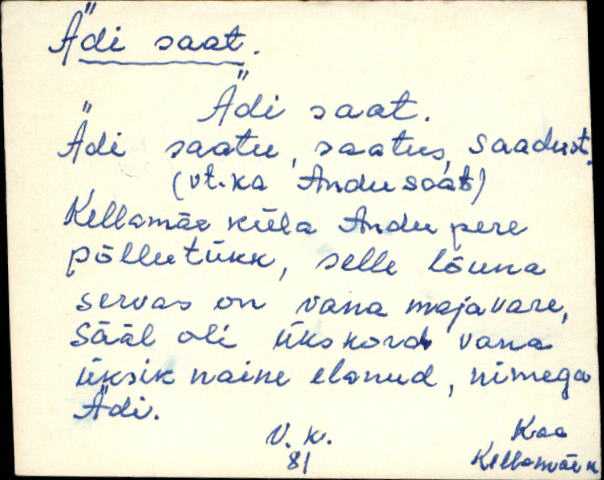 Ädi saat.
Ädi saat.
Ädi saatu, saatus, saadust.
(vt. ka Andu saat)
Kellamäe küla Andu pere
põllutükk, selle lõuna
servas on vana majavare,
Sääl oli ükskord vana
üksik naine elanud, nimega
Ädi.
V. k. Kaa
81 Kellamäe k